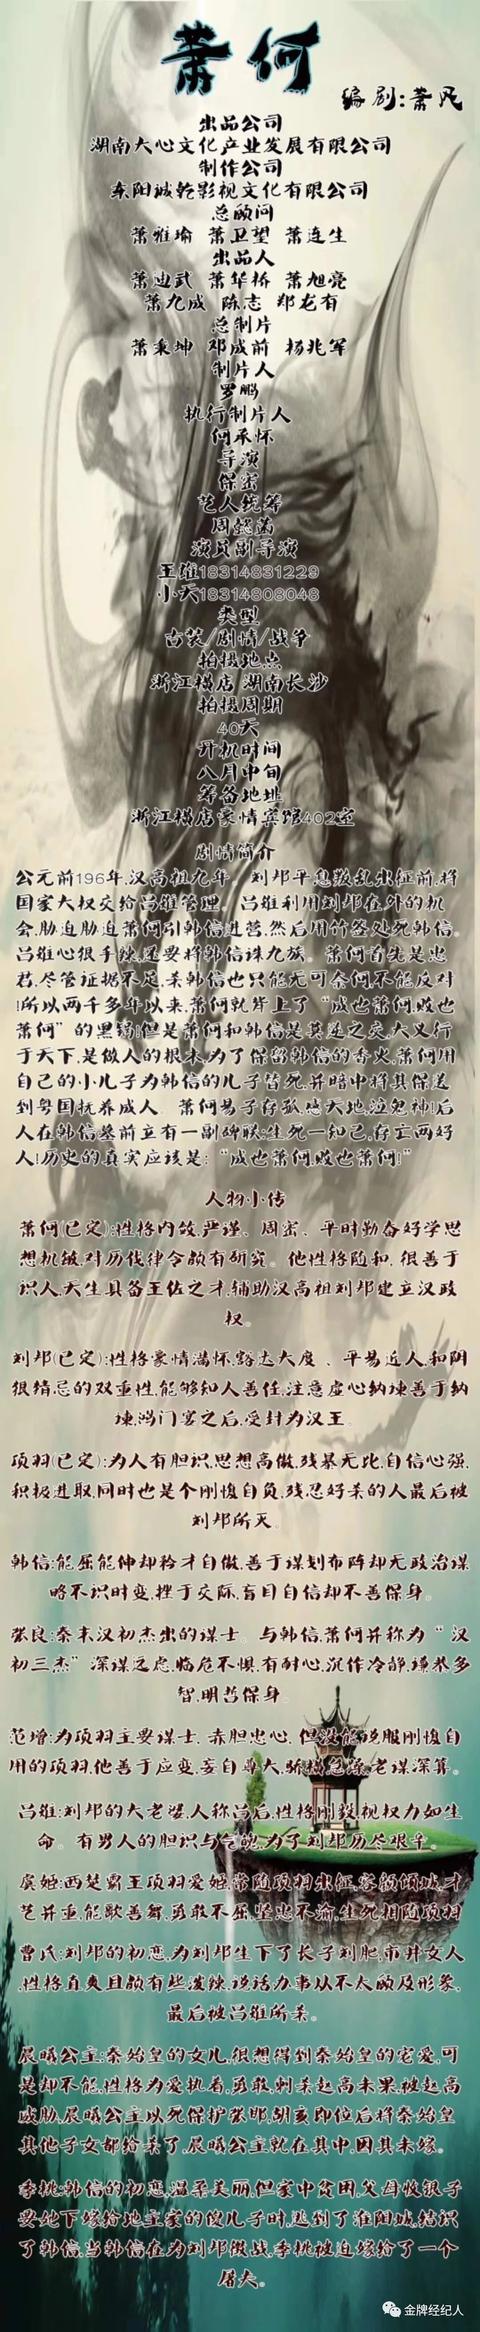 萧何
编剧:萧风
出品公司
湖南大心文化产业发展有限公司
制作公司
东阳诚乾影视文化有限公司
总顾问
萧雅瑜 萧卫望 萧连生
出品人
萧迪武 萧华桥 萧旭亮
萧九成 陈志 郑龙有
总制片
萧秉坤 邓成前 杨兆军
制片人
罗鹏
执行制片人
何承怀
导演
保密
艺人统筹
周懿菡
演员副导演
王雄18314831229
小天18314808048
类型
古装/剧情/战争
拍摄地点
浙江横店 湖南长沙
拍摄周期
40天
开机时间
八月中旬
筹备地址
浙江横店豪情宾馆402室
剧情简介
公元前196年,汉高祖九年。刘邦平息叛乱出征前,将
国家大权交给吕雉管理。吕雉利用刘邦在外的机
会,胁迫胁迫萧何引韩信进宫,然后用竹签处死韩信。
吕雉心狠手辣,还要将韩信诛九族。萧何首先是忠
君,尽管证据不足,杀韩信也只能无可奈何不能反对
!所以两千多年以来,萧何就背上了“成也萧何,败也
萧何”的黑锅!但是萧何和韩信是莫逆之交,大义行
于天下,是做人的根本,为了保留韩信的香火,萧何用
自己的小儿子为韩信的儿子替死,并暗中将其保送
到粤国抚养成人。萧何易子存孤,感天地,泣鬼神!后
人在韩信墓前立有一副碑联:生死一知己,存亡两好
人!历史的真实应该是:“成也萧何,败也萧何!”
人物小传
萧何(已定):性格内敛,严谨、周密、平时勤奋好学思
想机敏,对历代律令颇有研究。他性格随和,很善于
识人,天生具备王佐之才,辅助汉高祖刘邦建立汉政
权。
刘邦(已定):性格豪情满怀,豁达大度、平易近人,和阴
狠猜忌的双重性,能够知人善任,注意虚心纳谏善于纳
谏,鸿门宴之后,受封为汉王。
项羽(已定):为人有胆识,思想高傲,残暴无比,自信心强,
积极进取,同时也是个刚愎自负,残忍好杀的人最后被
刘邦所灭。
韩信:能屈能伸却矜才自傲,善于谋划布阵却无政治谋
略不识时变,拙于交际,盲目自信却不善保身。
张良:秦末汉初杰出的谋士。与韩信,萧何并称为“汉
初三杰”深谋远虑,临危不惧,有耐心,沉作冷静,谦恭多
智,明哲保身。
范增:为项羽主要谋士,赤胆忠心,但没能说服刚愎自
用的项羽,他善于应变,妄自尊大,骄横急躁,老谋深算。
吕雉:刘邦的大老婆,人称吕后,性格刚毅视权力如生
命。有男人的胆识与气魄,为了刘邦历尽艰辛。
虞姬:西楚霸王项羽爱姬,常随项羽出征,容颜倾城,才
艺并重,能歌善舞,勇敢不屈,坚忠不渝,生死相随项羽
曹氏:刘邦的初恋,为刘邦生下了长子刘肥,市井女人
,性格直爽且颇有些泼辣,说话办事从不太顾及形象,
最后被吕雉所杀。
晨曦公主:秦始皇的女儿,很想得到秦始皇的宠爱,可
是却不能,性格为爱执着,勇敢,刺杀赵高未果,被赵高
威胁,晨曦公主以死保护章邯,胡亥即位后将秦始皇
其他子女都给杀了,晨曦公主就在其中,因其未嫁。
季桃:韩信的初恋,温柔美丽,但家中贫困,父母收银子
要她下嫁给地主家的傻儿子时,逃到了淮阴城,结识
了韩信,当韩信在为刘邦征战,季桃被迫嫁给了一个
屠夫。
金牌经纪人